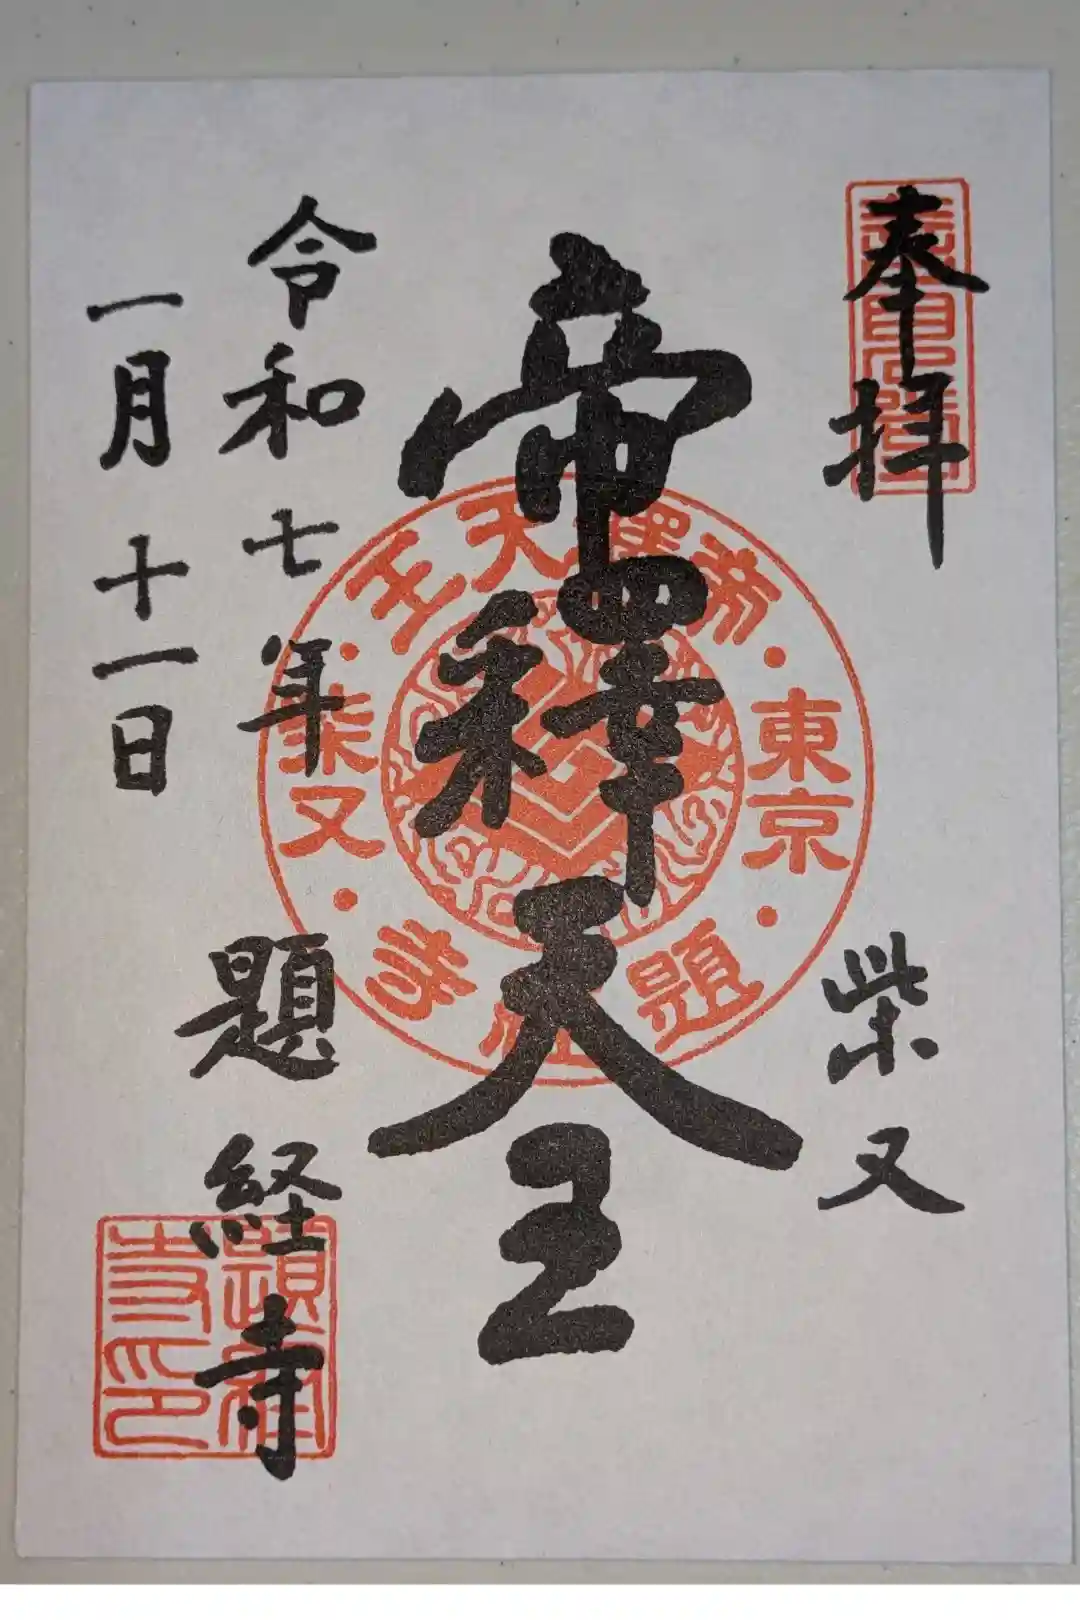 奉拝
柴又
帝釋天王
令和七年
一月十一日
題経寺
東京
帝釋天王
柴又
題経寺